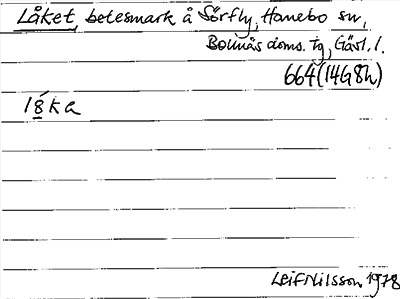 Låket, betesmark å Sörfly, Hanebo sn,
Bollnäs doms. tg, Gävl. l.
664(14G8h)
Leif Nilsson 1978